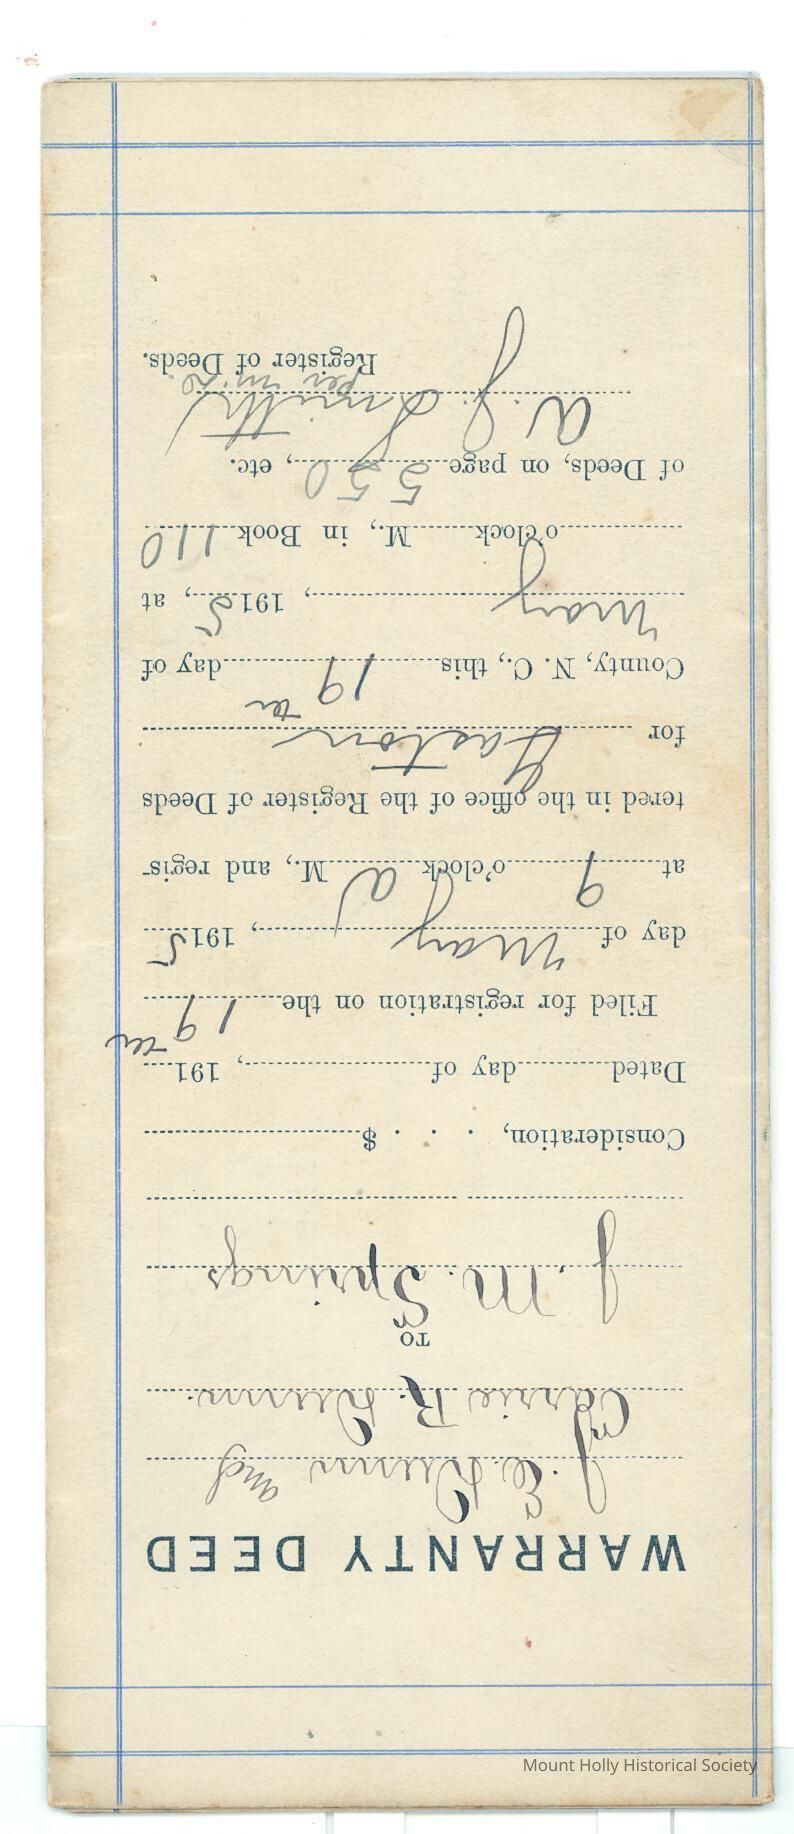 WARRANTY DEED
J. E. Dunn and
Carrie R. Dunn
TO
J. M. Springs
Consideration, . . . $
Dated day of , 191
Filed for registration on the 19th
day of May , 1915
at 9 o'clock A M., and regis-
tered in the office of the Register of Deeds
for Gaston
County, N. C., this 19th day of
May , 1915, at
o'clock M., in Book 110
of Deeds, on page 550, etc.
A. J. Smith
per
Register of Deeds.
Mount Holly Historical Society